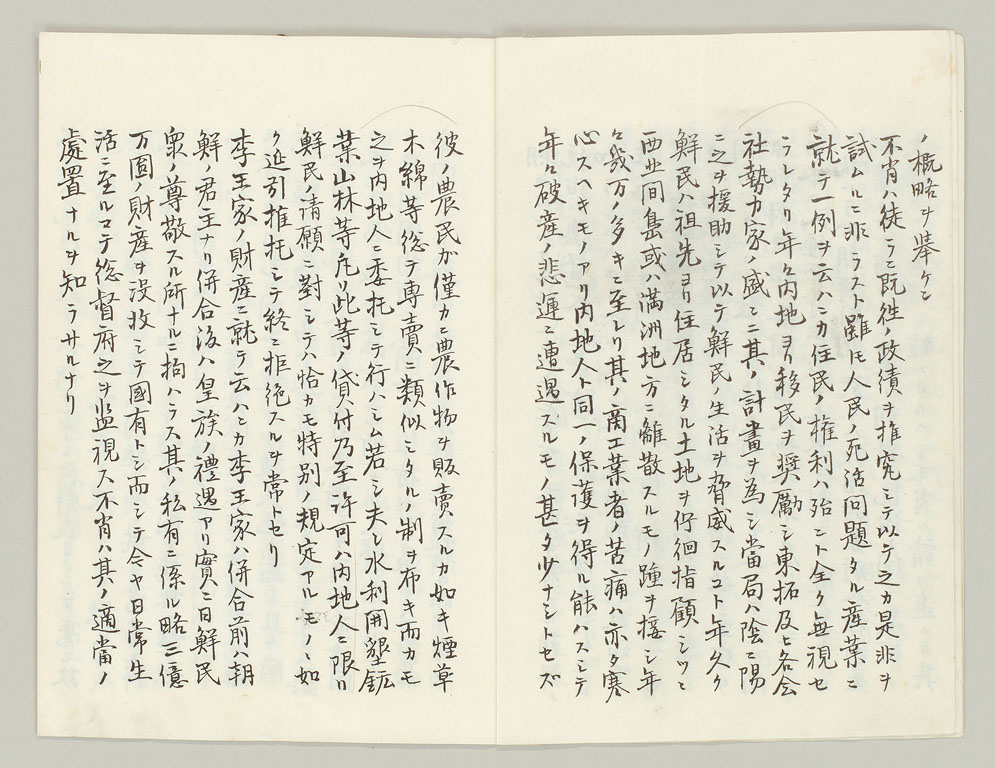 ノ概略ヲ挙ケン
不肖ハ徒ラニ既徃ノ政績ヲ推究シテ以テ之カ是非ヲ
試ムルニ非ラスト雖モ人民ノ死活問題タル産業ニ
就テ一例ヲ云ハンカ住民ノ権利ハ殆ント全ク無視セ
ラレタリ年々内地ヨリ移民ヲ奨励シ東拓及ヒ各会
社勢力家ノ盛ンニ其ノ計畫ヲ為シ當局ハ陰ニ陽
ニ之ヲ援助シテ以テ鮮民ノ生活ヲ脅威スルコト年久ク
鮮民ハ祖先ヨリ住居シタル土地ヲ低徊指顧シツヽ
西北間島或ハ満洲地方ニ離散スルモノ踵ヲ接シ年
々幾万ノ多キニ至レリ其ノ商工業者ノ苦痛ハ亦タ寒
心スヘキモノアリ内地人ト同一ノ保護ヲ得ル能ハスシテ
年々破産ノ悲運ニ遭遇スルモノ甚タ少ナシトセズ
彼ノ農民カ僅カニ農作物ヲ販賣スルカ如キ煙草
木綿等総テ専賣ニ類似シタルノ制ヲ布キ而カモ
之ヲ内地人ニ委托シテ行ハシム若シ夫レ水利開墾鉱
業山林等凡リ此等ノ貸付乃至許可ハ内地人ニ限リ
鮮民ノ請願ニ對シテハ恰カモ特別ノ規定アルモノヽ如
ク延引推托シテ終ニ拒絶スルヲ常トセリ
李王家ノ財産ニ就テ云ハンカ李王家ハ併合前ハ朝
鮮ノ君主ナリ併合後ハ皇族ノ禮遇アリ實ニ日鮮民
衆ノ尊敬スル所ナルニ拘ハラス其ノ私有ニ係ル略三億
万圓ノ財産ヲ没收シテ國有トシ而シテ今ヤ日常生
活ニ至ルマテ総督府之ヲ監視ス不肖ハ其ノ適當ノ
處置ナルヲ知ラサルナリ